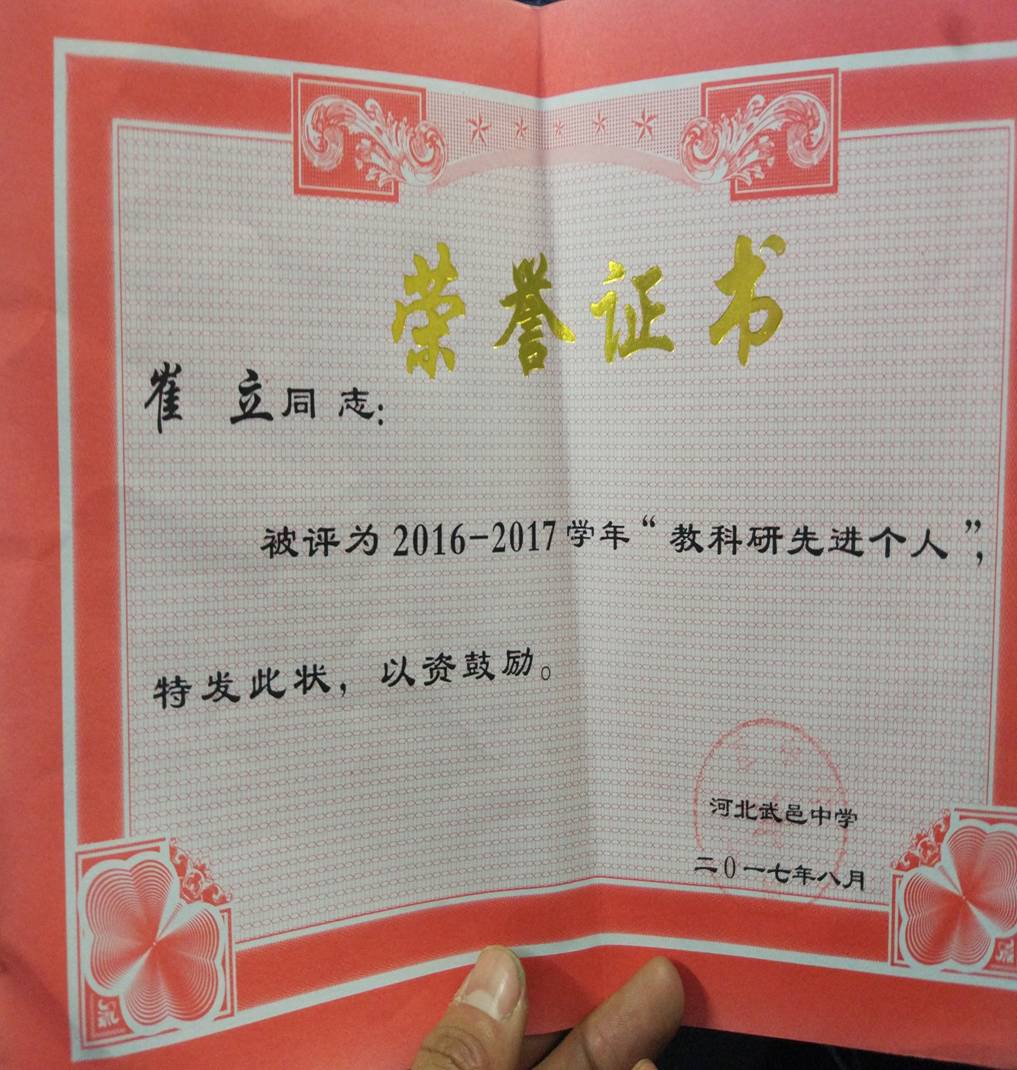 荣誉证书
崔 立同志：
被评为2016-2017学年“教科研先进个人”，
特发此状，以资鼓励。
河北武邑中学
二0一七年八月